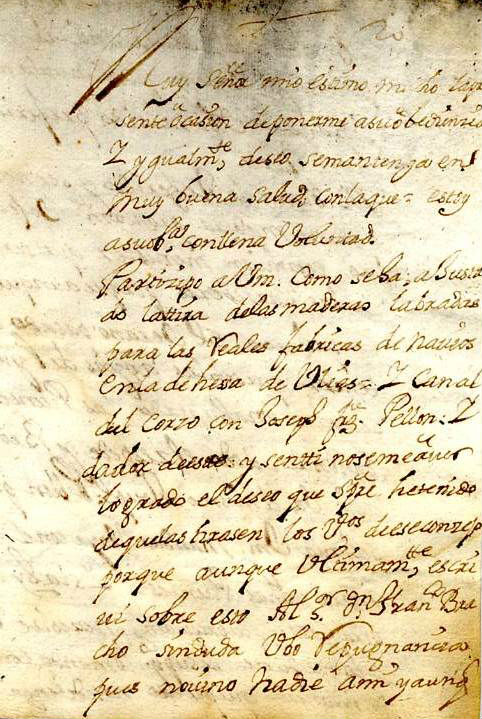 Muy Señor mio estimo mucho la pre
sente ocasion de ponerme a su obediencia
Y ygualmte, deseo se mantenga en
muy buena salud con la que = estoy
a su obcia, con llena Voluntad.
Partizipo a Vm. Como se ba, a Justa
do la ttira de las maderas labradas
para las Reales fabricas de navios
en la dehesa de = Y Canal
del Corzo con Joseph frz. Pellon = Y
dador de este = y sentti no se me aver
logrado el deseo que spre he tenido
de que las tirasen los Vos de ese conzejo
porque aunque Ultimamte, escri
ui sobre esto Al sor Dn Franco Bre
cho sin duda Ubo Repugnanzia
pues no uino nadie ami y aunq